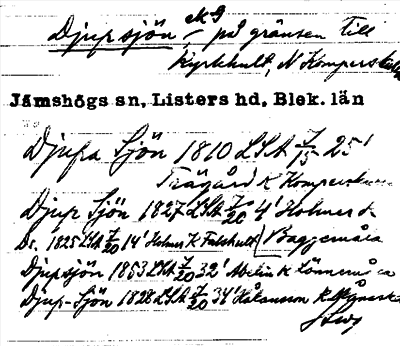 Djupsjön, på gränsen till
Kyrkhult, N Komperskulla
Jämshögs sn, Listers hd, Blek. län
Djupa Sjön 1810 LSA 7/15 25'
Trägård K Komperskulla
Djup Sjön 1827 LSA 7/20 4' Holmer
Do. 1825 LSA 7/20 14' Holmer K Farabult Baggemåla
Djupsjön 1853 LSA 7/20 32' K
Djup-Sjön 1828 LSA 7/20 34' Håkansson K